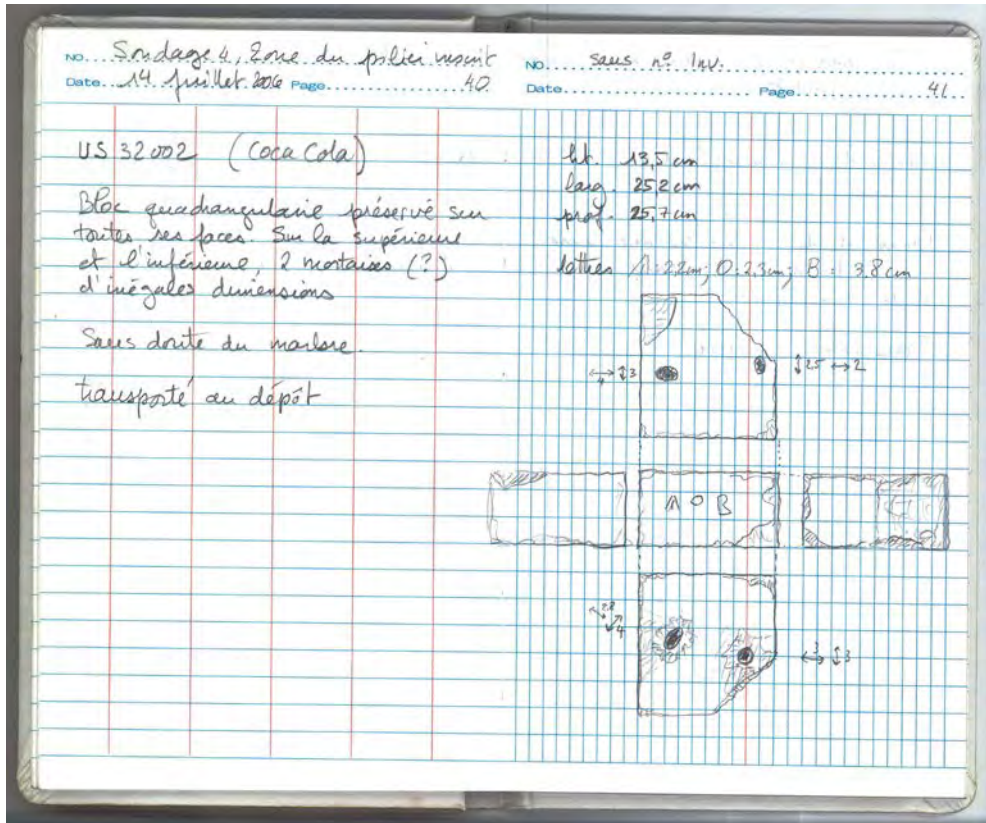 NO. Sondage 4, Zone du pilier inscrit
Date 14 Juillet 2006 Page 40
US 32002 (Coca Cola)
Bloc quadrangulaire préservé sur
toutes ses faces. Sur la supérieure
et l'inférieure, 2 mortaises (?)
d'inégales dimensions
Sans doute du marbre.
transporté au dépôt
NO. sans n° Inv.
Date Page 41
ht. 13,5 cm
larg. 25,2 cm
prof. 25,7 cm
lettres Λ: 2,2cm; O: 2,3cm; B = 3,8 cm
↔ 4 ↕ 3
↕ 2,5 ↔ 2
Λ O B
4
↔ 3 ↕ 3